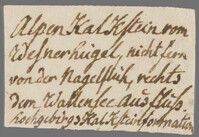 Alpen Kalkstein vom
Wesnerhügel, nicht fern
von der Nagelfluh, rechts
dem Wallensee Ausfluss
Hochgebirgs Kalksteinformation